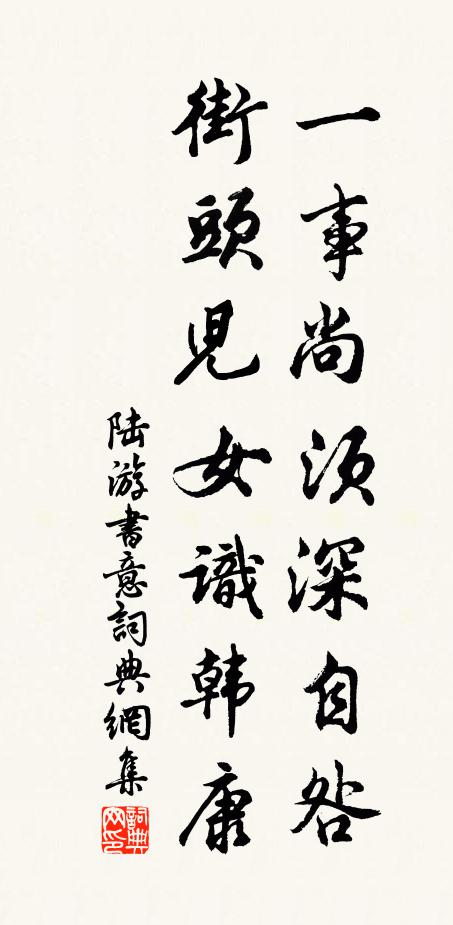 一事尚須深自咎
街頭児女識韓康
陆游書意詞典網集
詞典网印